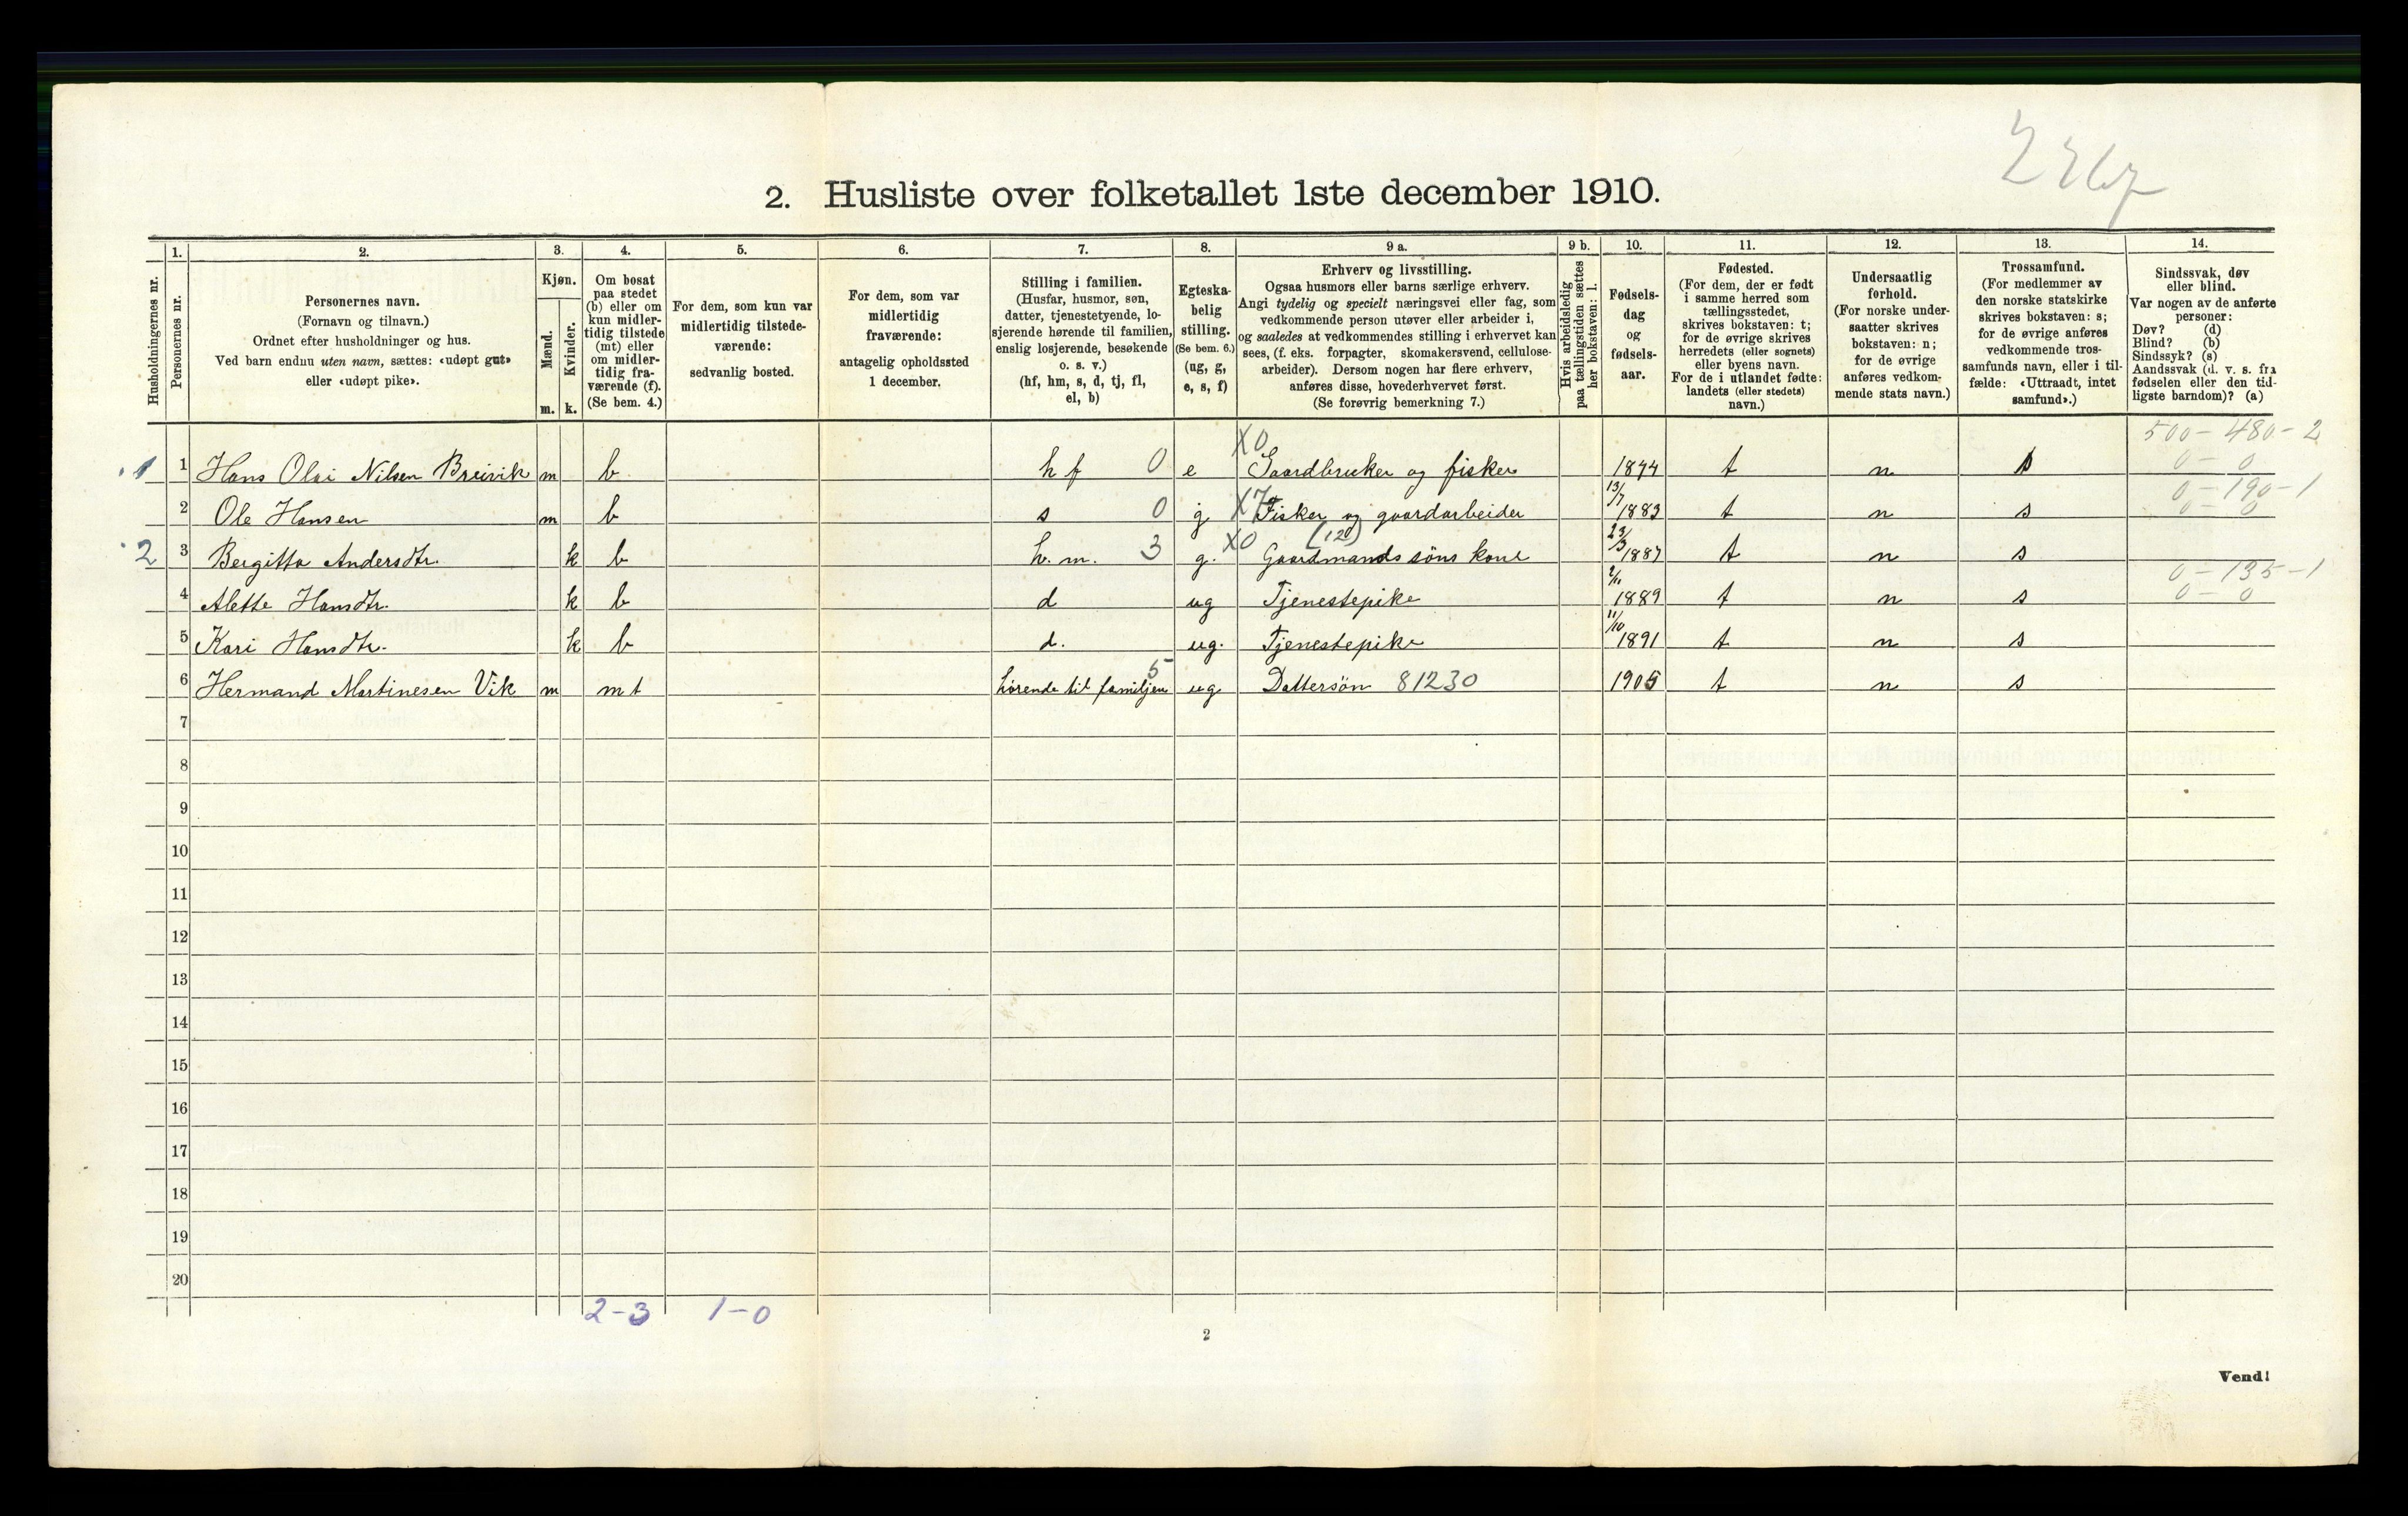 2 Ekf
2. Husliste over folketallet 1ste december 1910.
Husholdningernes nr.
1.
Personernes nr.
2.
Personernes navn.
(Fornavn og tilnavn.)
Ordnet efter husholdninger og hus.
Ved barn endnu uten navn, sættes: «udøpt gut»
eller «udøpt pike».
3.
Kjøn.
Mænd.
Kvinder.
m. k.
4.
Om bosat
paa stedet
(b) eller om
kun midler-
tidig tilstede
(mt) eller
om midler-
tidig fra-
værende (f).
(Se bem. 4.)
5.
For dem, som kun var
midlertidig tilstede-
værende:
sedvanlig bosted.
6.
For dem, som var
midlertidig
fraværende:
antagelig opholdssted
1 december.
7.
Stilling i familien.
(Husfar, husmor, søn,
datter, tjenestetyende, lo-
sjerende hørende til familien,
enslig losjerende, besøkende
o. s. v.)
(hf, hm, s, d, tj, fl,
el, b)
8.
Egteska-
belig
stilling.
(Se bem. 6.)
(ug, g,
e, s, f)
9 a.
Erhverv og livsstilling.
Ogsaa husmors eller barns særlige erhverv.
Angi tydelig og specielt næringsvei eller fag, som
vedkommende person utøver eller arbeider i,
og saaledes at vedkommendes stilling i erhvervet kan
sees, (f. eks. forpagter, skomakersvend, cellulose-
arbeider). Dersom nogen har flere erhverv,
anføres disse, hovederhvervet først.
(Se forøvrig bemerkning 7.)
9 b.
Hvis arbeidsledig
paa tællingstiden sættes
her bokstaven: l.
10.
Fødsels-
dag
og
fødsels-
aar.
11.
Fødested.
(For dem, der er født
i samme herred som
tællingsstedet,
skrives bokstaven: t;
for de øvrige skrives
herredets (eller sognets)
eller byens navn.
For de i utlandet fødte:
landets (eller stedets)
navn.)
12.
Undersaatlig
forhold.
(For norske under-
saatter skrives
bokstaven: n;
for de øvrige
anføres vedkom-
mende stats navn.)
13.
Trossamfund.
(For medlemmer av
den norske statskirke
skrives bokstaven: s;
for de øvrige anføres
vedkommende tros-
samfunds navn, eller i til-
fælde: «Uttraadt, intet
samfund».)
14.
Sindssvak, døv
eller blind.
Var nogen av de anførte
personer:
Døv? (d)
Blind? (b)
Sindssyk? (s)
Aandssvak (d. v. s. fra
fødselen eller den tid-
ligste barndom)? (a)
X0 500 - 480 - 2
1 1 Hans Olai Nilsen Breivik m b h f 0 e Gaardbruker og fisker 1844 t n s 0 - 0
13/7 0 - 190 - 1
2 Ole Hansen m b s 0 g X7 Fisker og gaardarbeider 1883 t n s 0 - 0
(12) 23/3
2 3 Bergitta Andersdtr. k b h. m. 3 g. X0 Gaardmands söns kone 1887 t n s
0 - 135 - 1
4 Alette Hansdtr. k b d ug Tjenestepike 1889 t n s 0 - 0
11/10
5 Kari Hansdtr. k b d. ug. Tjenestepike 1891 t n s
5
6 Hermand Martinesen Vik m mt hörende til familjen ug Dattersön 81230 1905 t n s
7
8
9
10
11
12
13
14
15
16
17
18
19
20
2-3 1-0
2
Vend!